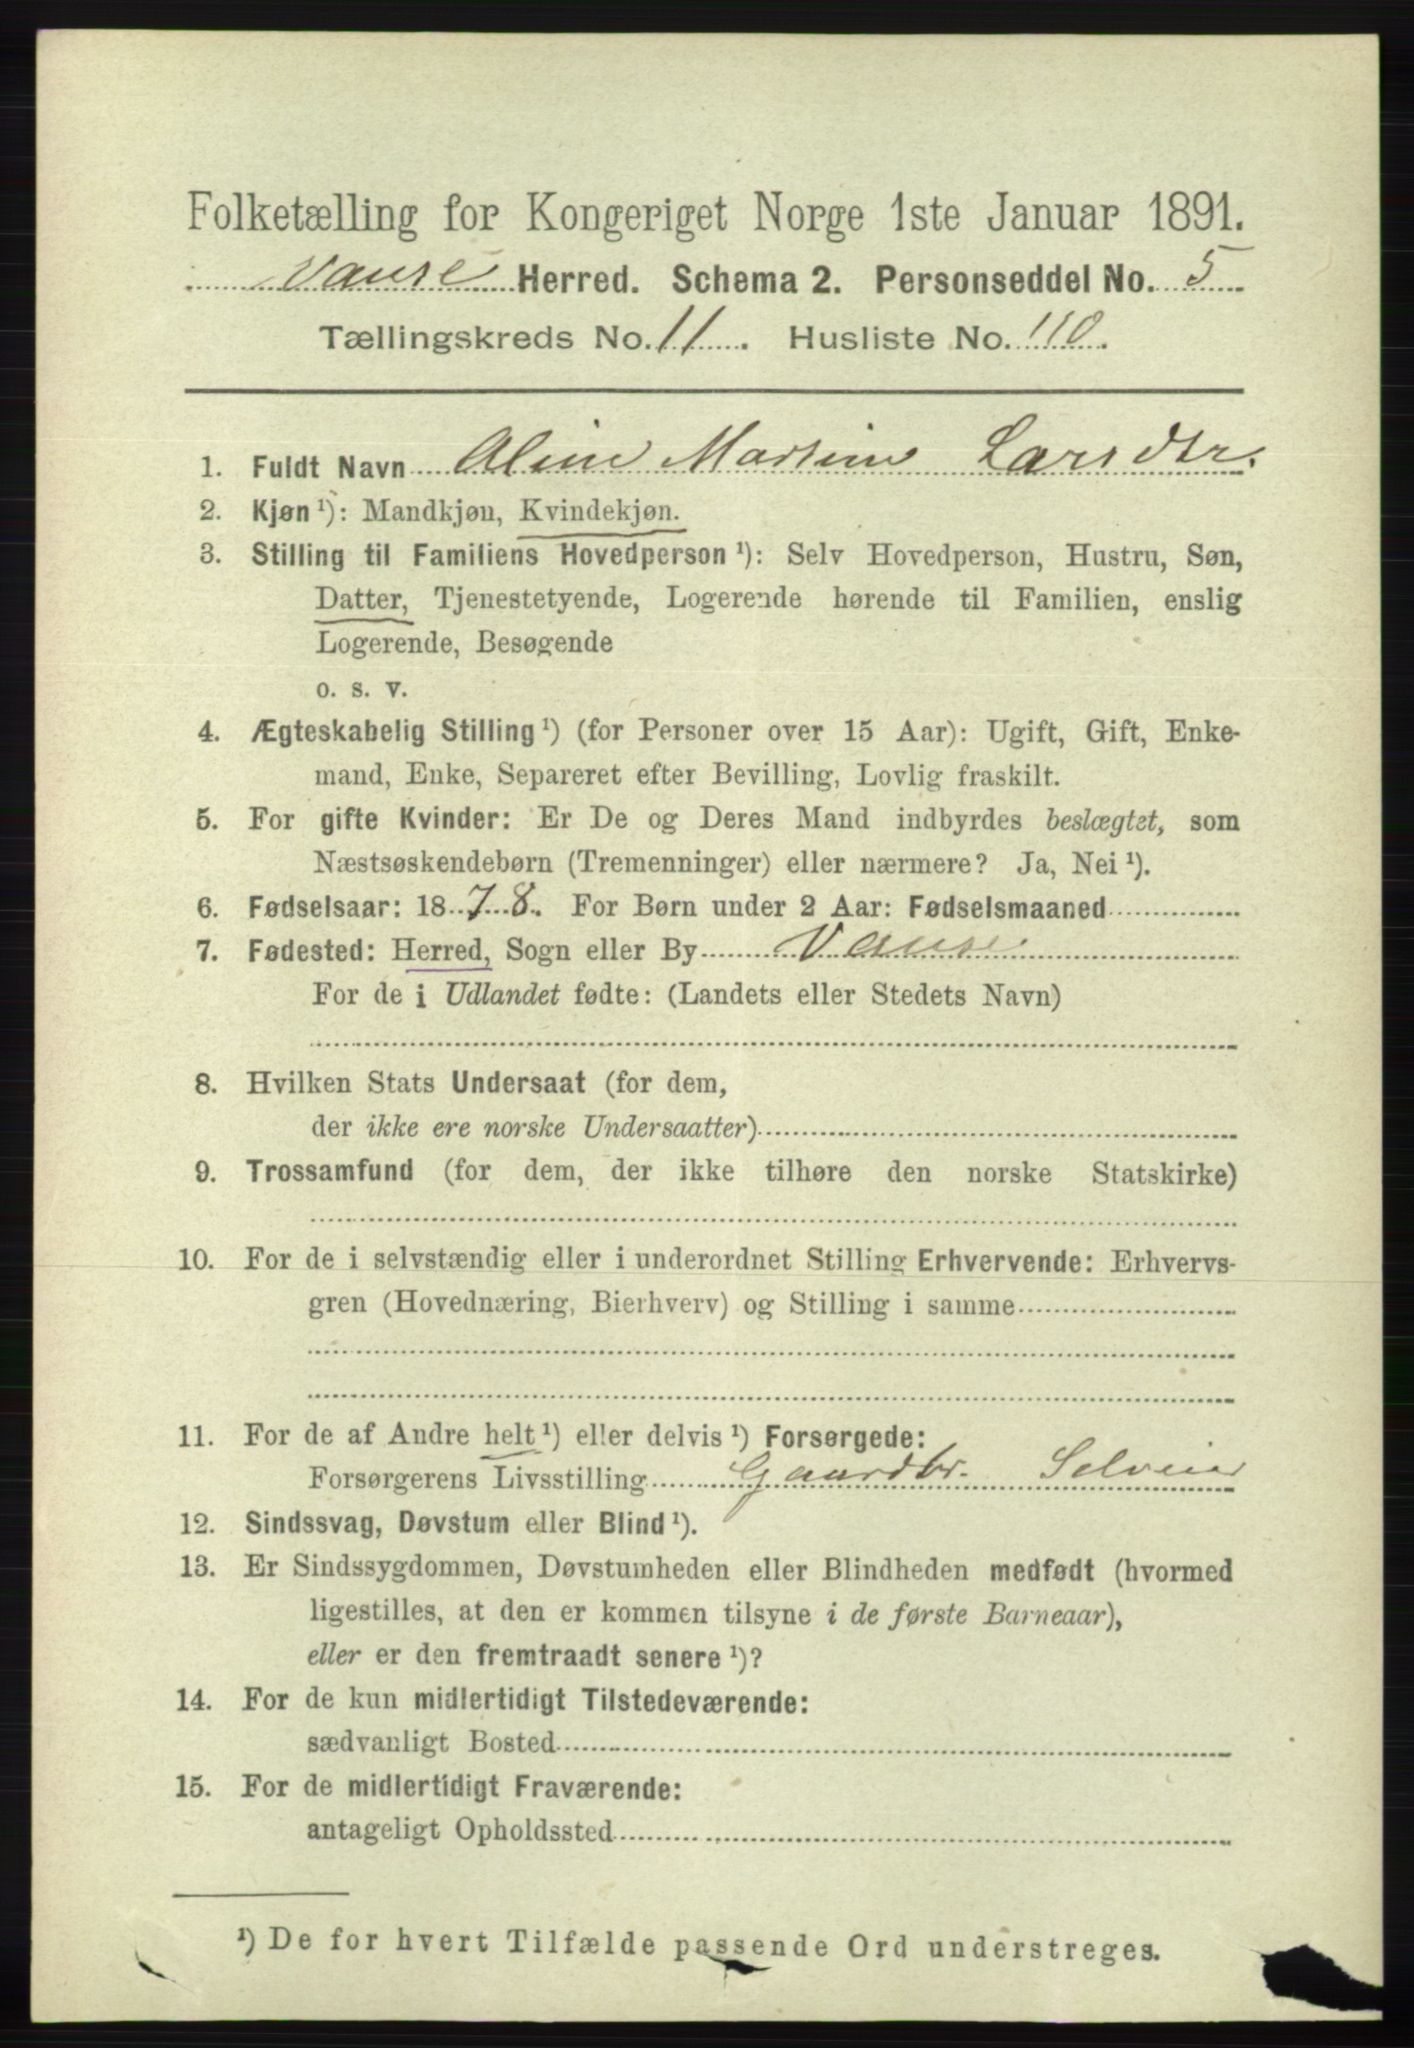 Folketælling for Kongeriget Norge 1ste Januar 1891.
Vanse Herred. Schema 2. Personseddel No. 5
Tællingskreds No. 11. Husliste No. 110.
1. Fuldt Navn Aline Martine Larsdtr.
2. Kjøn ¹): Mandkjøn, Kvindekjøn.
3. Stilling til Familiens Hovedperson ¹): Selv Hovedperson, Hustru, Søn,
Datter, Tjenestetyende, Logerende hørende til Familien, enslig
Logerende, Besøgende
o. s. v.
4. Ægteskabelig Stilling ¹) (for Personer over 15 Aar): Ugift, Gift, Enke-
mand, Enke, Separeret efter Bevilling, Lovlig fraskilt.
5. For gifte Kvinder: Er De og Deres Mand indbyrdes beslægtet, som
Næstsøskendebørn (Tremenninger) eller nærmere? Ja, Nei ¹).
6. Fødselsaar: 1878. For Børn under 2 Aar: Fødselsmaaned
7. Fødested: Herred, Sogn eller By Vanse
For de i Udlandet fødte: (Landets eller Stedets Navn)
8. Hvilken Stats Undersaat (for dem,
der ikke ere norske Undersaatter)
9. Trossamfund (for dem, der ikke tilhøre den norske Statskirke)
10. For de i selvstændig eller i underordnet Stilling Erhvervende: Erhvervs-
gren (Hovednæring, Bierhverv) og Stilling i samme
11. For de af Andre helt ¹) eller delvis ¹) Forsørgede:
Forsørgerens Livsstilling Gaardbr. Selveier
12. Sindssvag, Døvstum eller Blind ¹).
13. Er Sindssygdommen, Døvstumheden eller Blindheden medfødt (hvormed
ligestilles, at den er kommen tilsyne i de første Barneaar),
eller er den fremtraadt senere ¹)?
14. For de kun midlertidigt Tilstedeværende:
sædvanligt Bosted
15. For de midlertidigt Fraværende:
antageligt Opholdssted
¹) De for hvert Tilfælde passende Ord understreges.